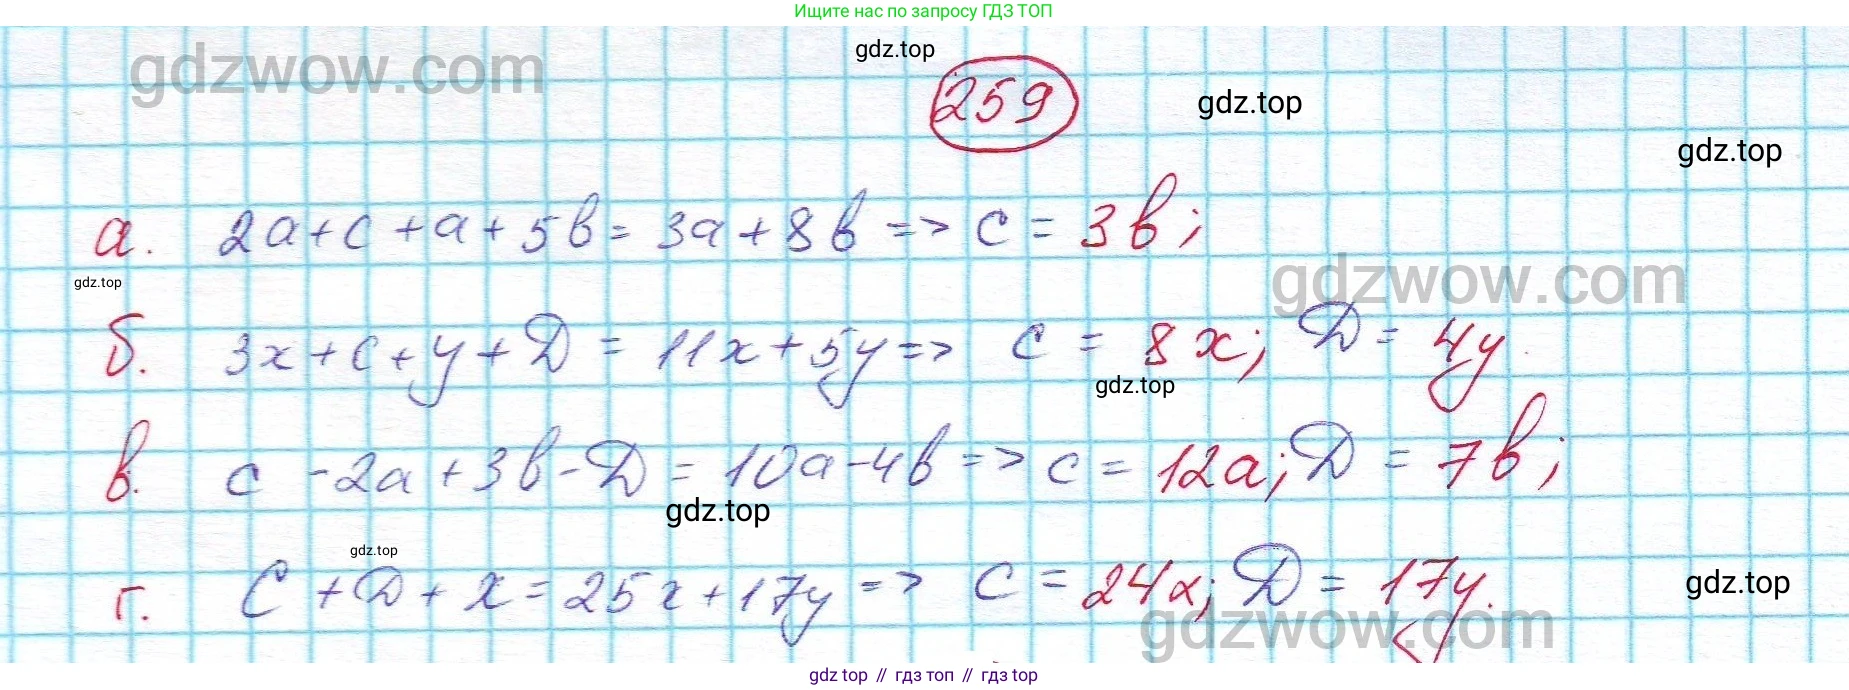 Ищите нас по запросу ГДЗ ТОП
gdzwow.com
gdz.top
259
gdz.top
gdz.top
а. 2a+c+a+5b = 3a+8b => c = 3b;
gdz.top
gdzwow.com
б. 3x+c+y+D = 11x+5y => c = 8x; D = 4y.
gdz.top
в. c -2a+3b-D = 10a-4b => c = 12a; D = 7b;
gdz.top
gdz.top
г. C+D+x = 25x+17y => C = 24x; D = 17y.
gdz.top
gdzwow.com
gdz top // гдз топ // gdz top